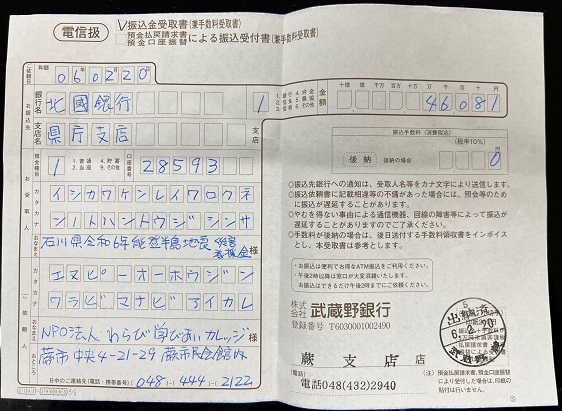 電信扱
V振込金受取書(兼手数料受取書)
預金払戻請求書
預金口座振替 による振込受付書(兼手数料受取書)
ご依頼日 和暦 060220
お振込先
銀行名 北國銀行 1
支店名 県庁支店 支店
金額 46081
預金種目 1 1.普通 2.当座 4.貯蓄 9.その他 口座番号 28593
お受取人
カタカナ イシカワケンレイワロクネ
ンノトハントウジシンサ
おなまえ 石川県令和6年能登半島地震災害義援金 様
ご依頼人
カタカナ エヌピーオーホウジン
ワラビマナビアイカレ
おなまえ NPO法人 わらび学びあいカレッジ
おところ 蕨市中央4-21-29 蕨市民会館内 様
日中のご連絡先(電話・携帯番号) 048-444-2122
振込手数料 (消費税込)
(税率10%)
後納 後納の場合 0
◎振込先銀行への通知は、受取人名等をカナ文字により送信します。
◎振込依頼書に記載相違等の不備があった場合には、照会等のために振込が遅延することがあります。
◎やむを得ない事由による通信機器、回線の障害等によって振込が遅延することがありますのでご了承ください。
◎手数料が後納の場合は、後日送付する手数料領収書をインボイスとし、本受取書は参考とします。
・お振込は便利でお得なATM振込をご利用ください。
・午後2時までは窓口が大変混雑いたします。
お振込はできるだけ午後2時までにご依頼ください。
株式会社 武蔵野銀行
登録番号 T6030001002490
蕨支店 店
(電話)
電話048(432)2940
6.2.20